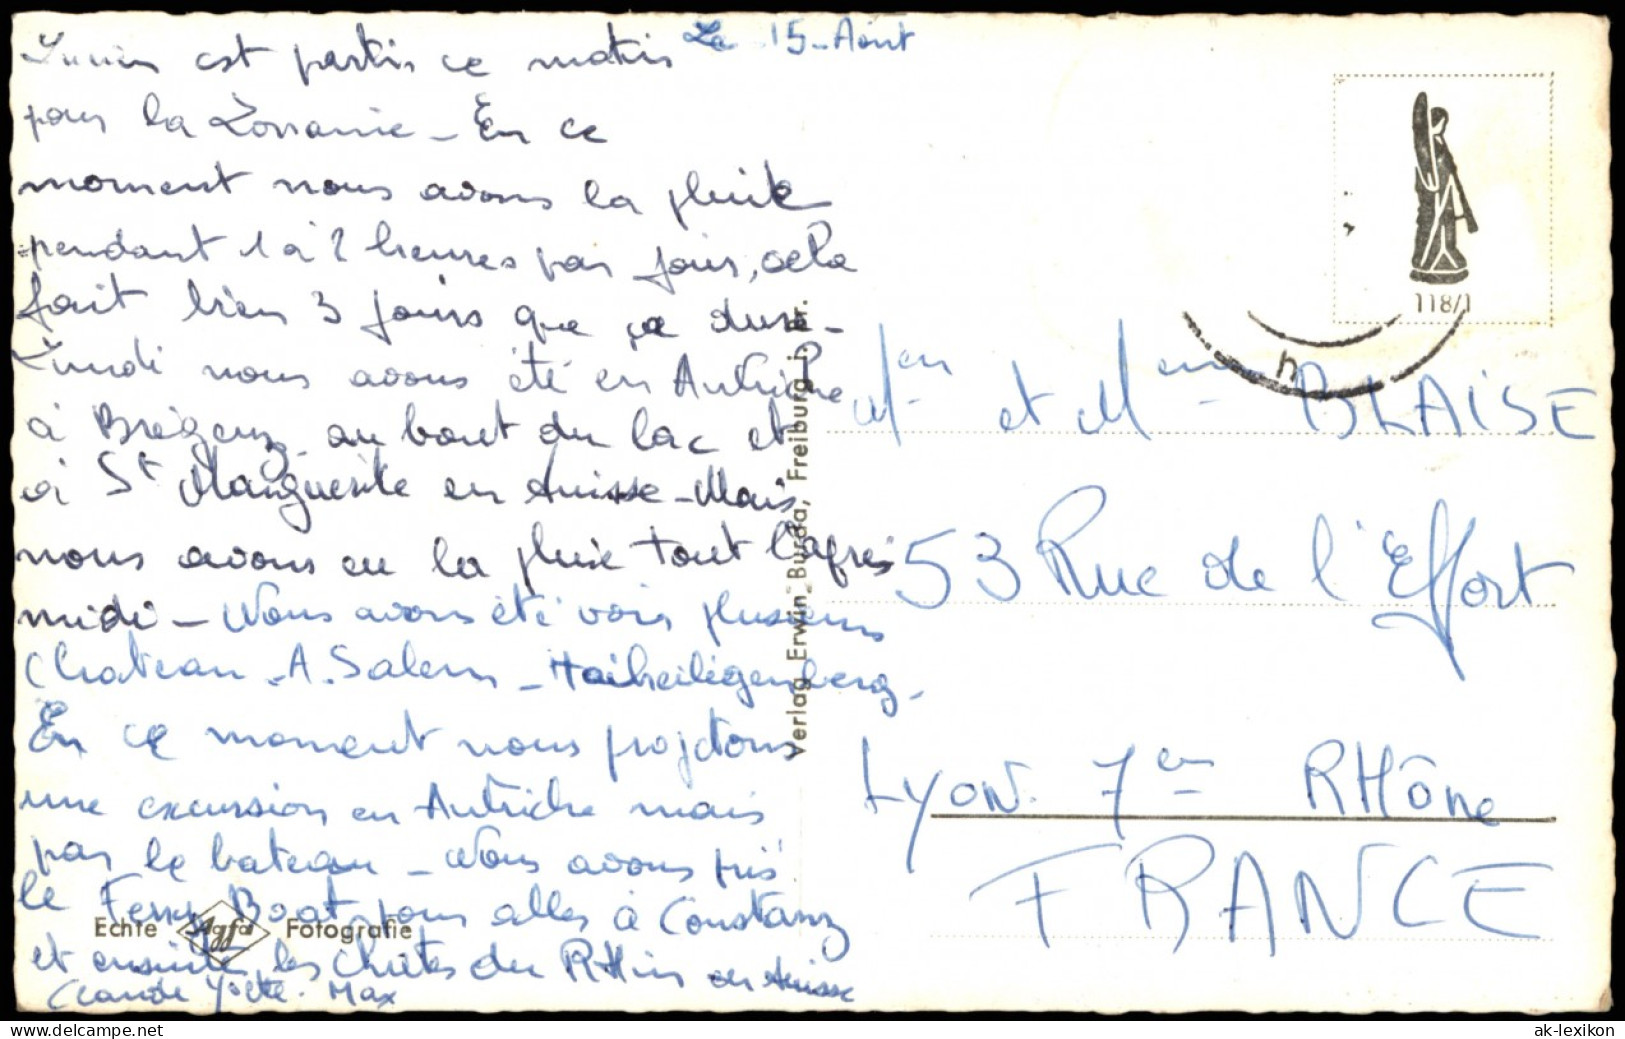 Le 15-Août
est partis ce matin
pour la Lorraine - En ce
moment nous avons la pluie
pendant 1 à 2 heures par jour, cela
fait bien 3 jours que ça dure -
Lundi nous avons été en Autriche
à Brégenz au bout du lac et
à St Marguerite en suisse - Mais
nous avons eu la pluie tout l'après
midi - Nous avons été voir plusieurs
Chateau - A. Salem - Heiligenberg -
En ce moment nous projetons
une excursion en Autriche mais
par le bateau - Nous avons pris
le Ferry Boat pour aller à Constanz
et ensuite les chutes du RHin en suisse
Claude Yvette - Max
Echte Agfa Fotografie
Verlag Erwin Burda, Freiburg i. Br.
118/1
h
Mer et Mem BLAISE
53 Rue de l'Effort
Lyon 7em RHône
FRANCE
delcampe.net
ak-lexikon